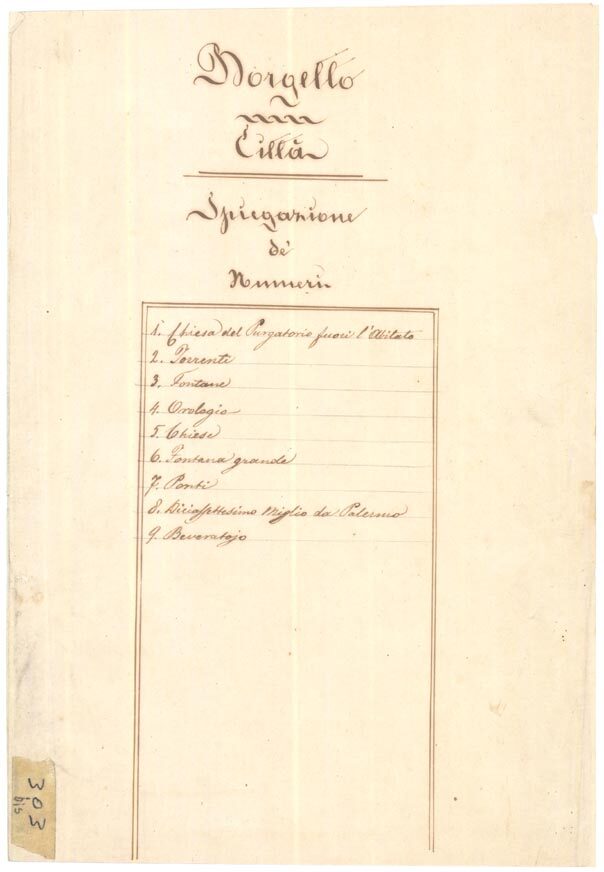 Borgetto
Città
Spiegazione
de'
Numeri
1. Chiesa del Purgatorio fuori l'Abitato
2. Torrenti
3. Fontane
4. Orologio
5. Chiese
6. Fontana grande
7. Ponti
8. Diciassettesimo Miglio da Palermo
9. Beveratojo
303
bis